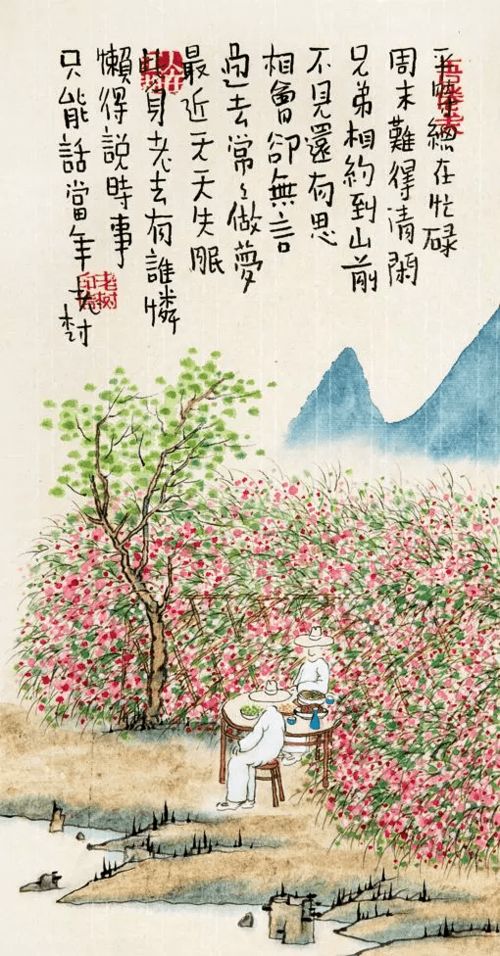 平常總在忙碌
周末難得清閑
兄弟相約到山前
不見還有思
相會卻無言
過去常々做夢
最近天天失眠
此身老去有誰憐
懶得說時事
只能話當年 老树